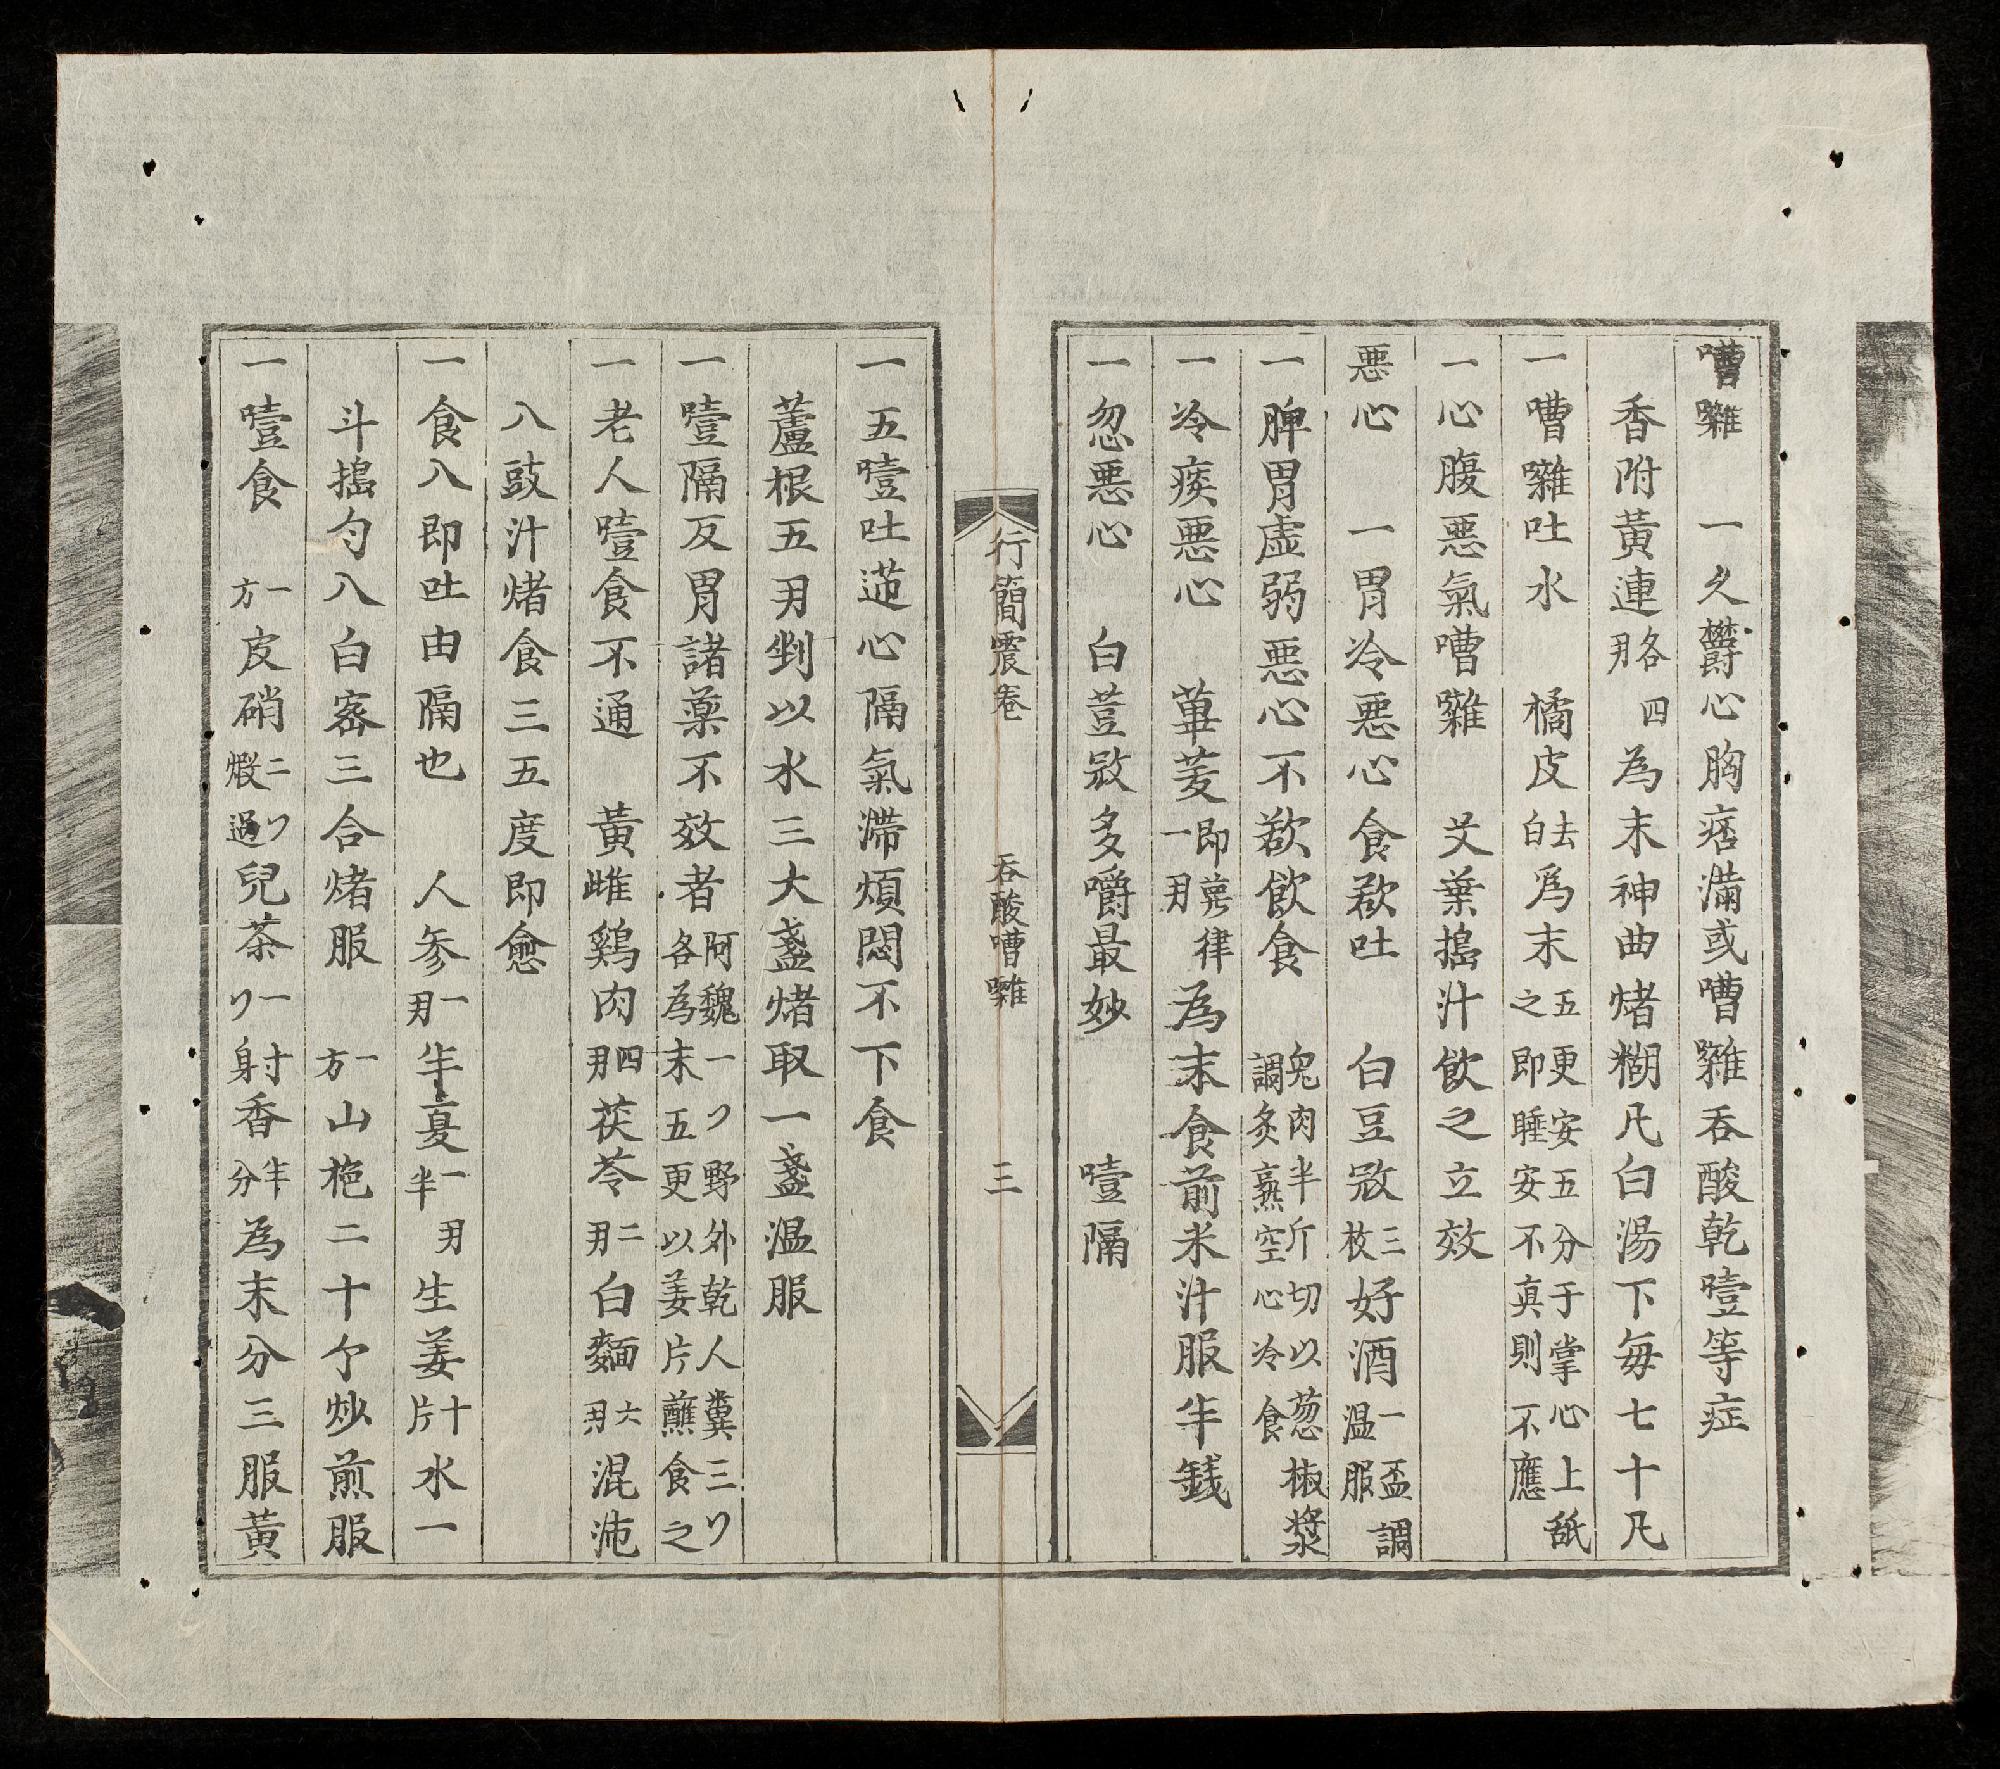 嘈囃　一久欝心胸痞滿或嘈囃吞酸乾噎等症
香附黃連各四刄為末神曲㷩糊凡白湯下每七十凡
一嘈囃吐水　橘皮去白爲末五更安五分于掌心上舐之即睡安不真則不應
一心腹惡氣嘈囃　艾葉搗汁飲之立效
惡心　一胃冷惡心食欲吐　白豆敚三枚好酒一盃調温服
一脾胃虛弱惡心不欲飲食　兔肉半斤切以葱椒漿調炙熟空心冷食
一冷痰惡心　蓽菱即蓽律一刄為末食前米汁服半銭
一忽惡心　白荳敚多嚼最妙　噎隔
行簡震卷　吞酸嘈囃　三
一五噎吐逆心隔氣滯煩悶不下食
蘆根五刄剉以水三大盞㷩取一盞温服
一噎隔反胃諸藥不效者阿魏一リ野外乾人糞三リ各為末五更以姜片蘸食之
一老人噎食不通　黃雌鷄肉四刄茯苓二刄白麵六刄混沌
八豉汁㷩食三五度即愈
一食入即吐由隔也　人參一刄半夏一刄半生姜十片水一
斗搗勻入白宻三合㷩服　一方山梔二十个炒煎服
一噎食　一方皮硝二リ煅過兒茶一リ射香半分為末分三服黃